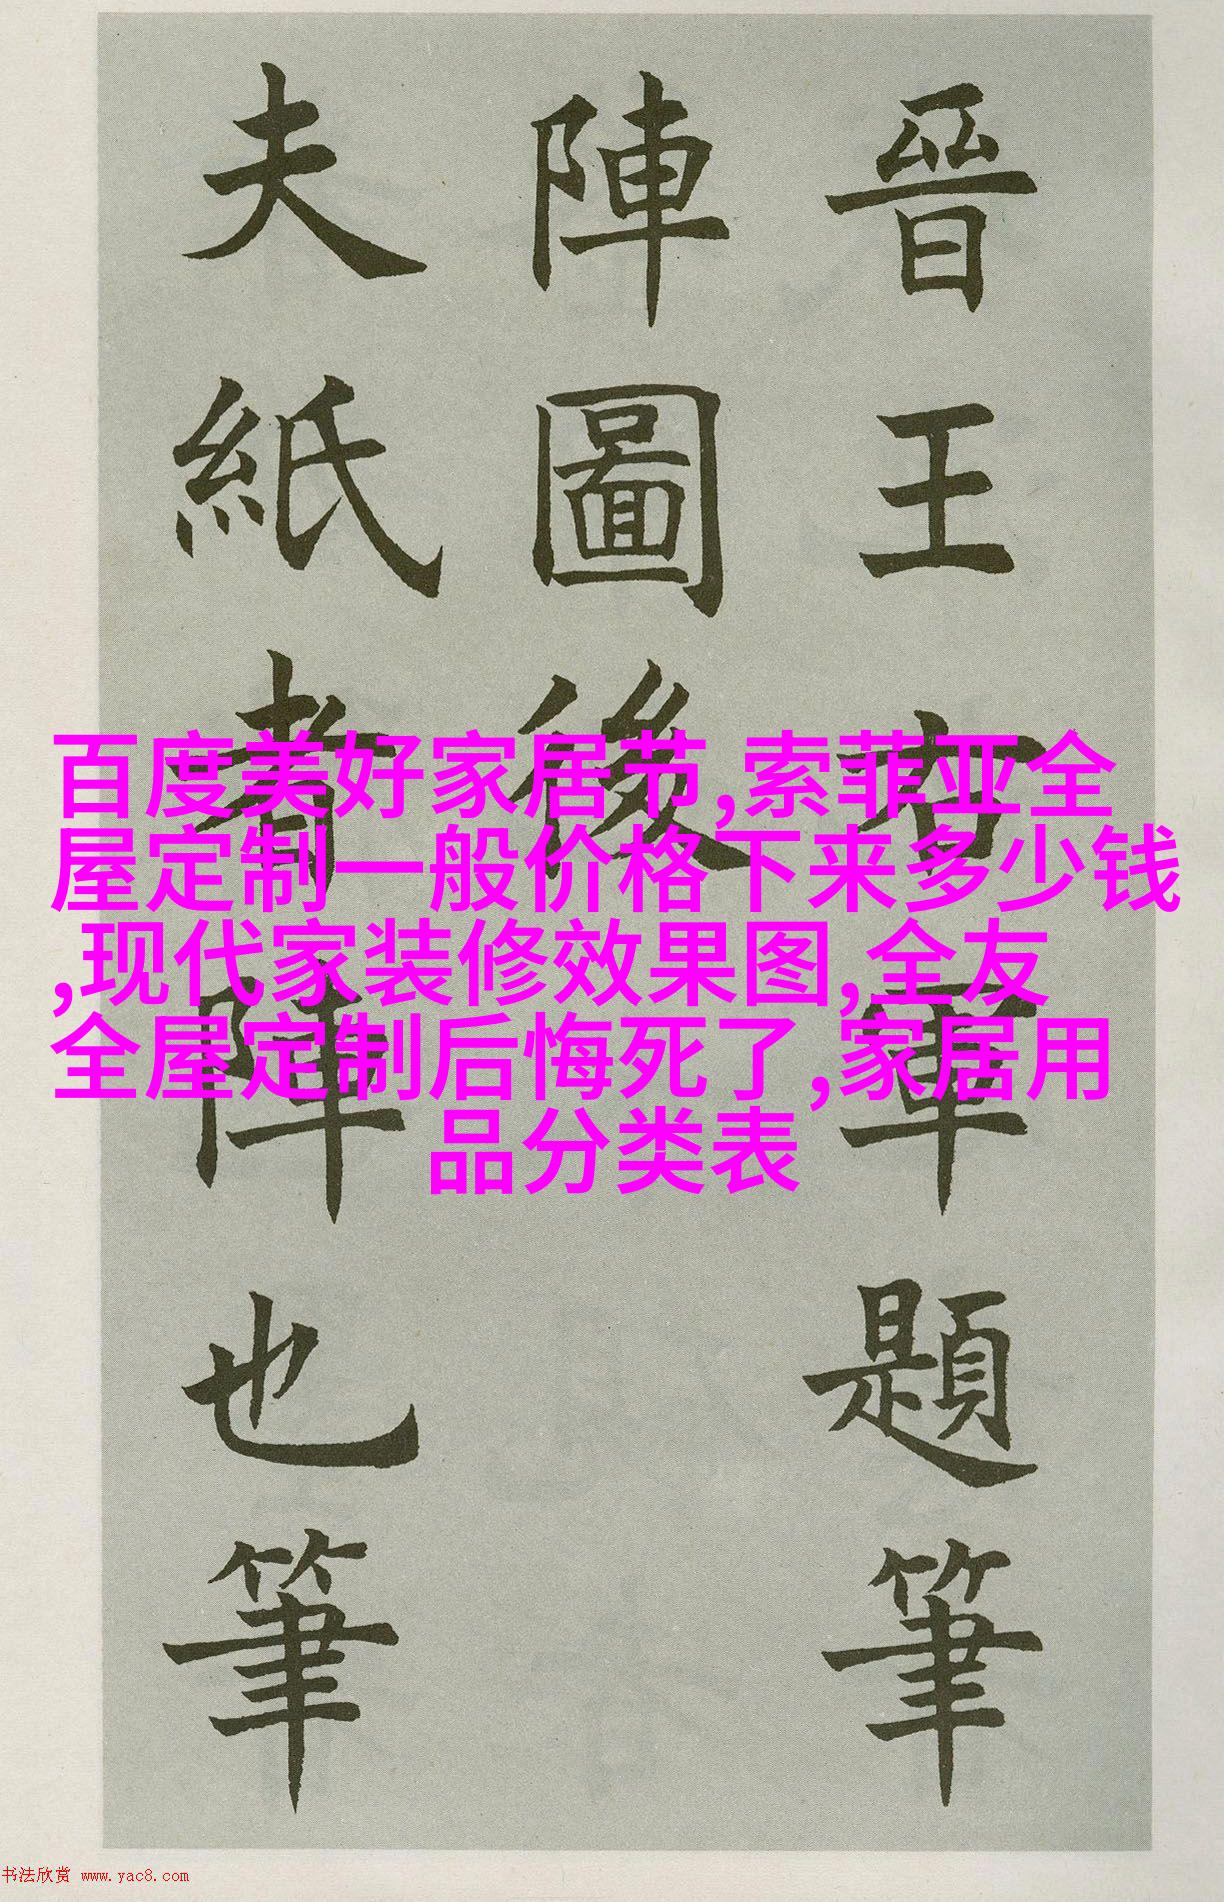 晉王右軍題筆
陣圖後
夫紙者陣也筆
百度美好家居节,索菲亚全
屋定制一般价格下来多少钱
,现代家装修效果图,全友
全屋定制后悔死了,家居用
品分类表
书法欣赏 www.yac8.com